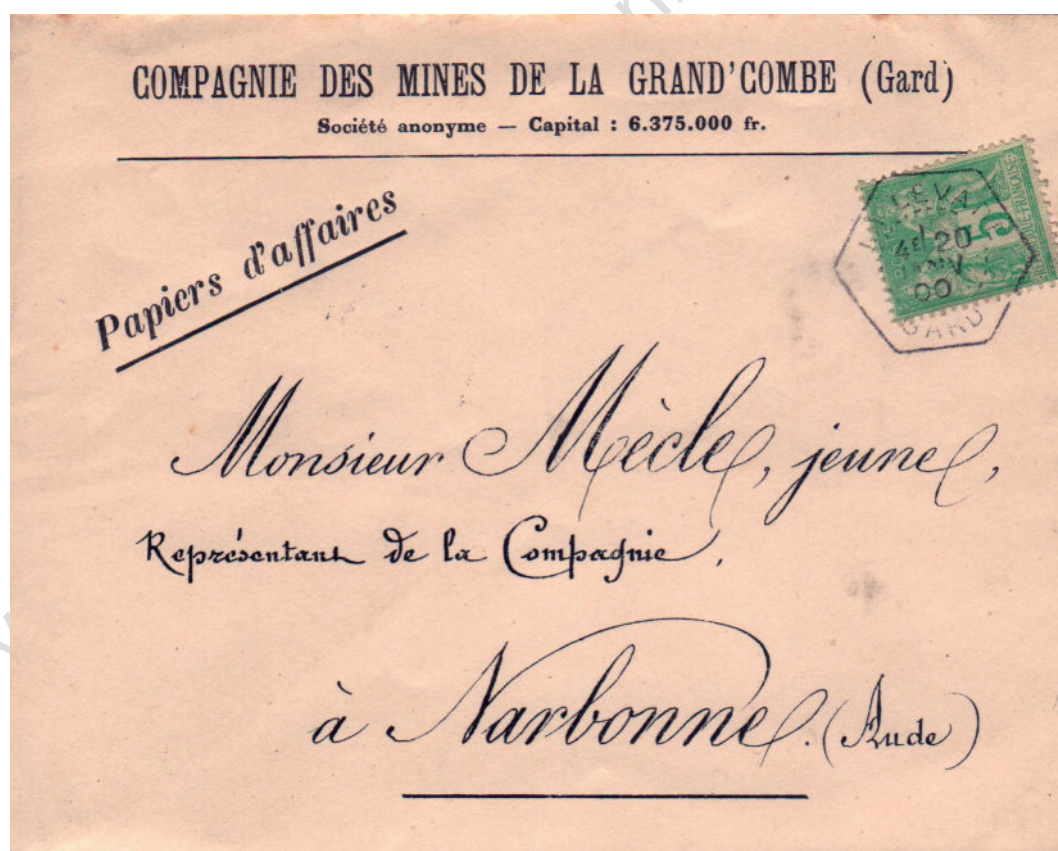 COMPAGNIE DES MINES DE LA GRAND'COMBE (Gard)
Société anonyme — Capital : 6.375.000 fr.
Papiers d'affaires
4E 20
00
GARD
5
Monsieur Mècle, jeune,
Représentant de la Compagnie,
à Narbonne. (Aude)